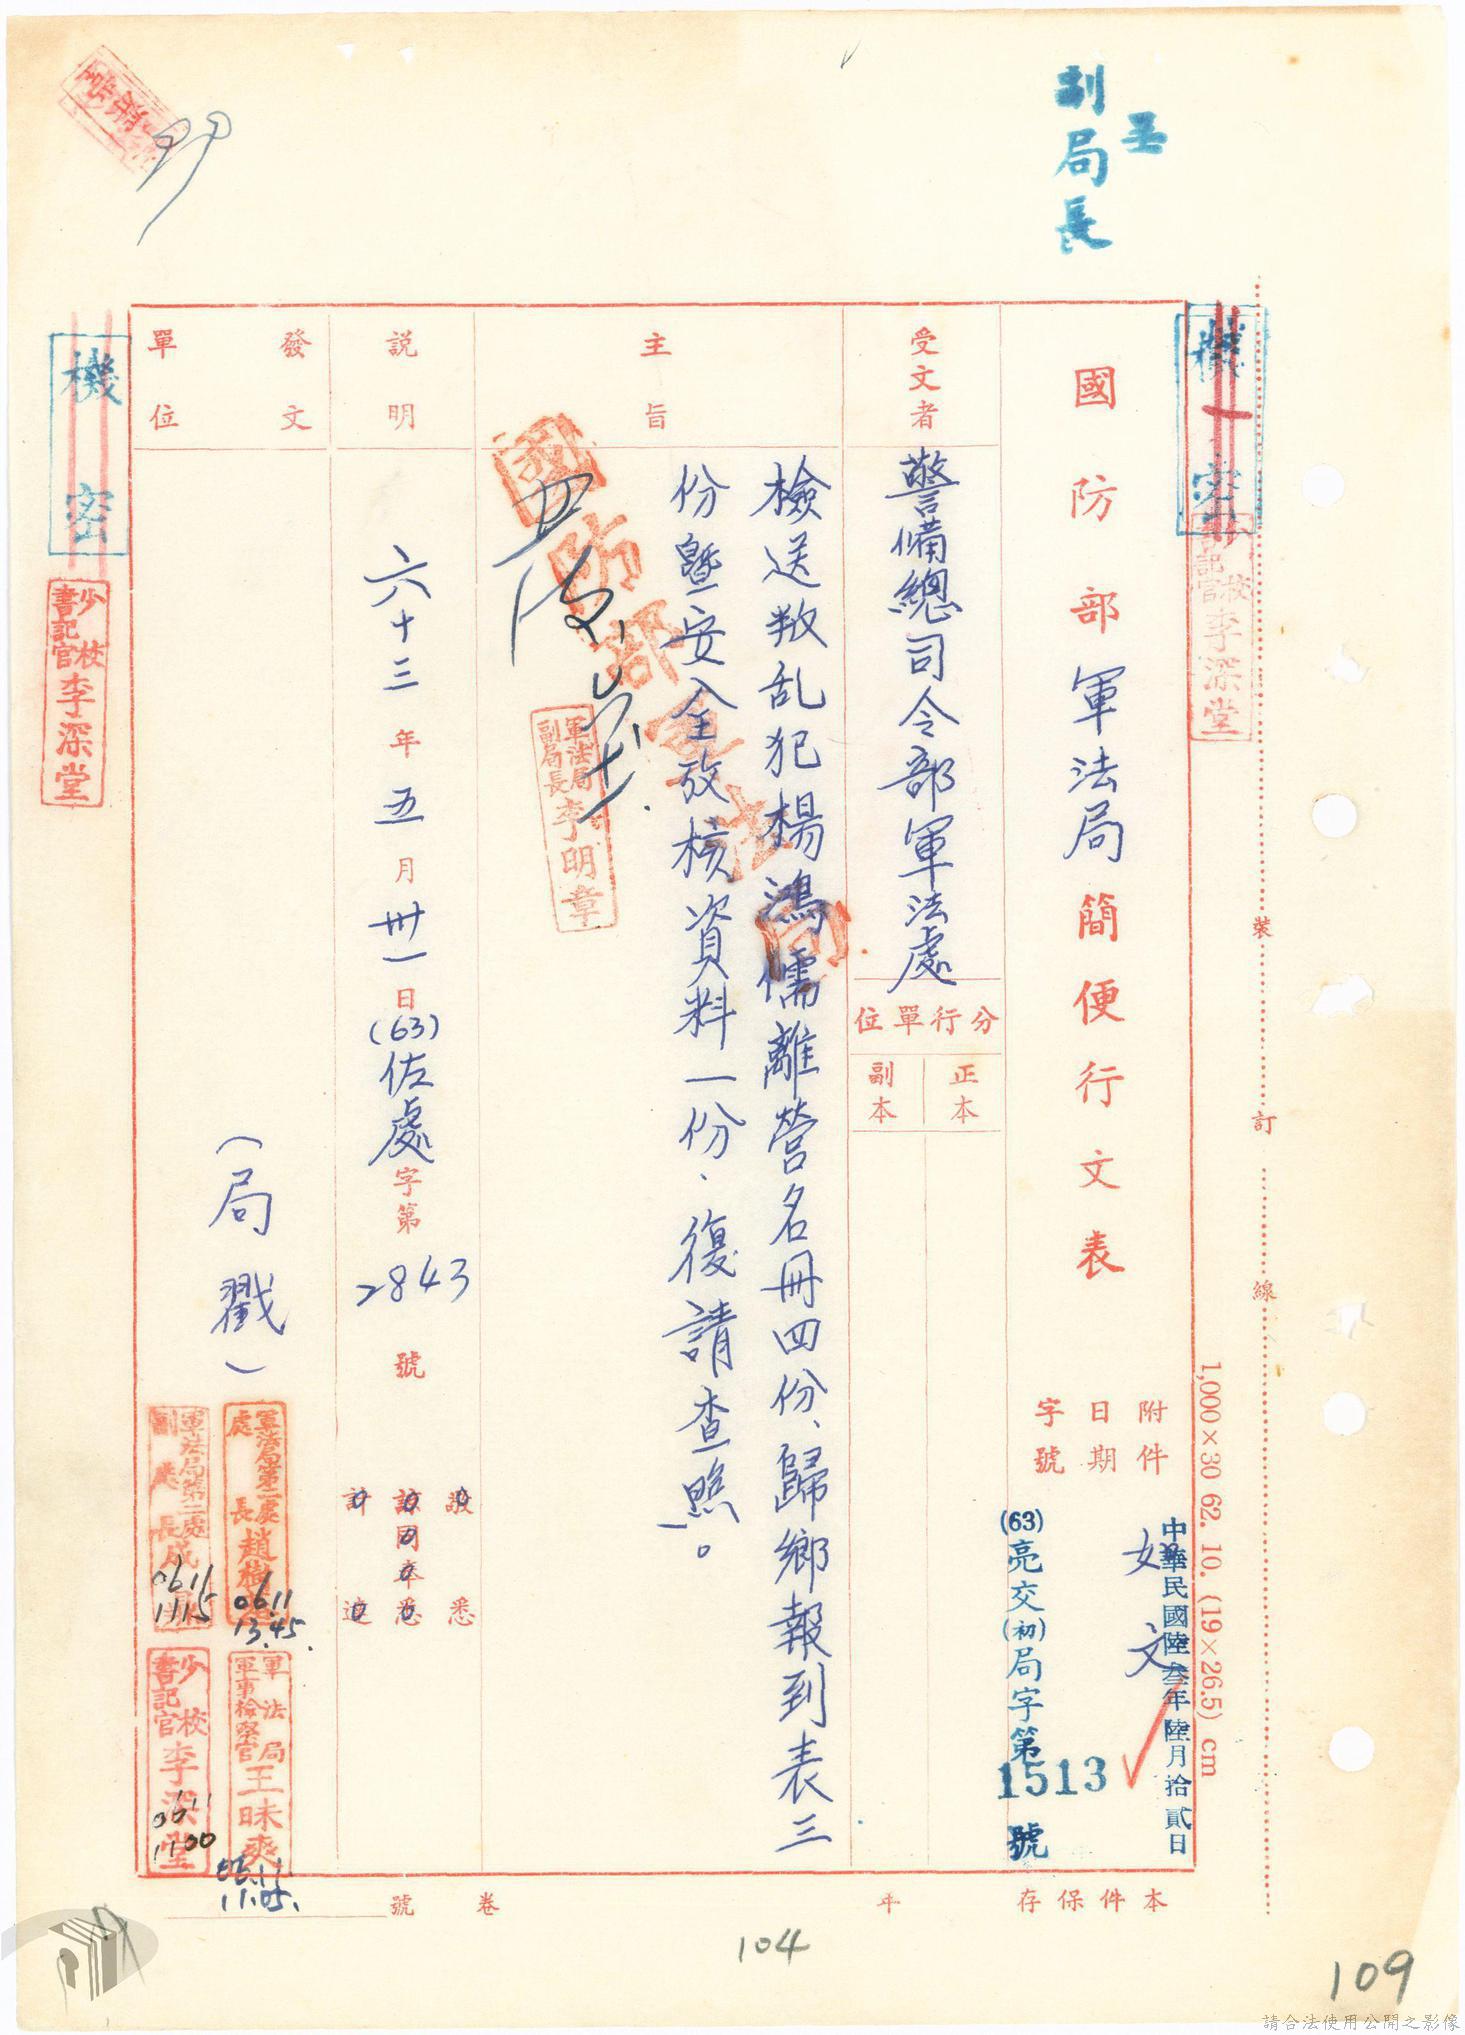 副局長
呈
機密
少校書記官李深堂
裝訂線
1,000×30 62. 10. (19×26.5) cm
國防部軍法局簡便行文表
附件
如文
日期
中華民國陸叁年陸月拾貳日
字號
(63)亮交(初)局字第1513號
受文者
警備總司令部軍法處
分行單位
正本
副本
主旨
檢送叛乱犯楊鴻儒離營名冊四份、歸鄉報到表三
份暨安全攷核資料一份、復請查照。
國防部軍法局
軍法局副局長李明章
說明
六十三年五月卅一日(63)佐處字第2843號
敬悉
該同本悉
計達
發文單位
(局戳)
軍法局第二處處長趙樹
0611
13.45.
軍法局第二處副處長成
0611
1115
軍法局軍事檢察官王昧爽
06.11
11.05.
少校書記官李深堂
0611
1100
機密
少校書記官李深堂
本件保存 年 卷 號
104
109
請合法使用公開之影像